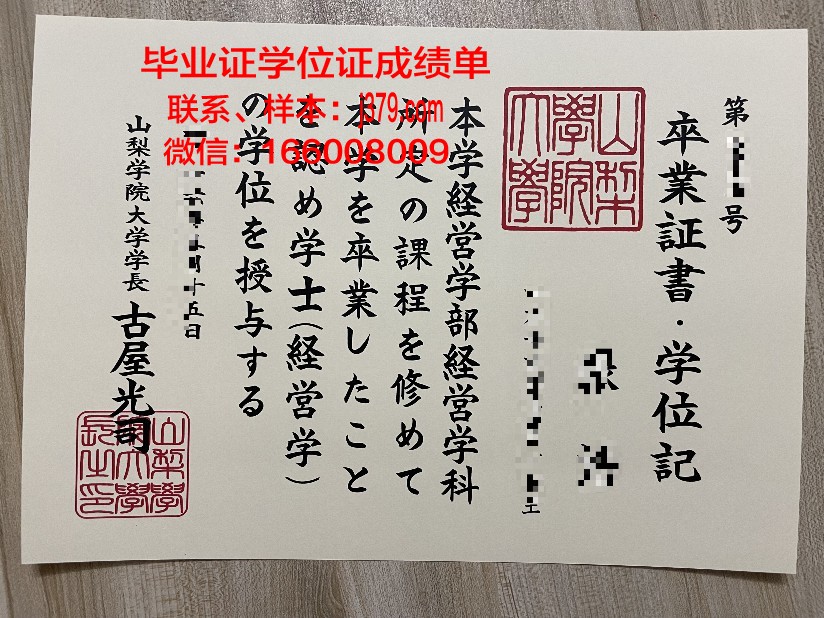 毕业证学位证成绩单
联系、样本:j379.com
微信:166008099
第
号
卒業証書・学位記
山梨
學院
大學
本学経営学部経営学科
所定の課程を修めて
本学を卒業したこと
を認め学士(経営学)
の学位を授与する
十五日
山梨学院大学学長 古屋光司
山梨學
院大學
長之印